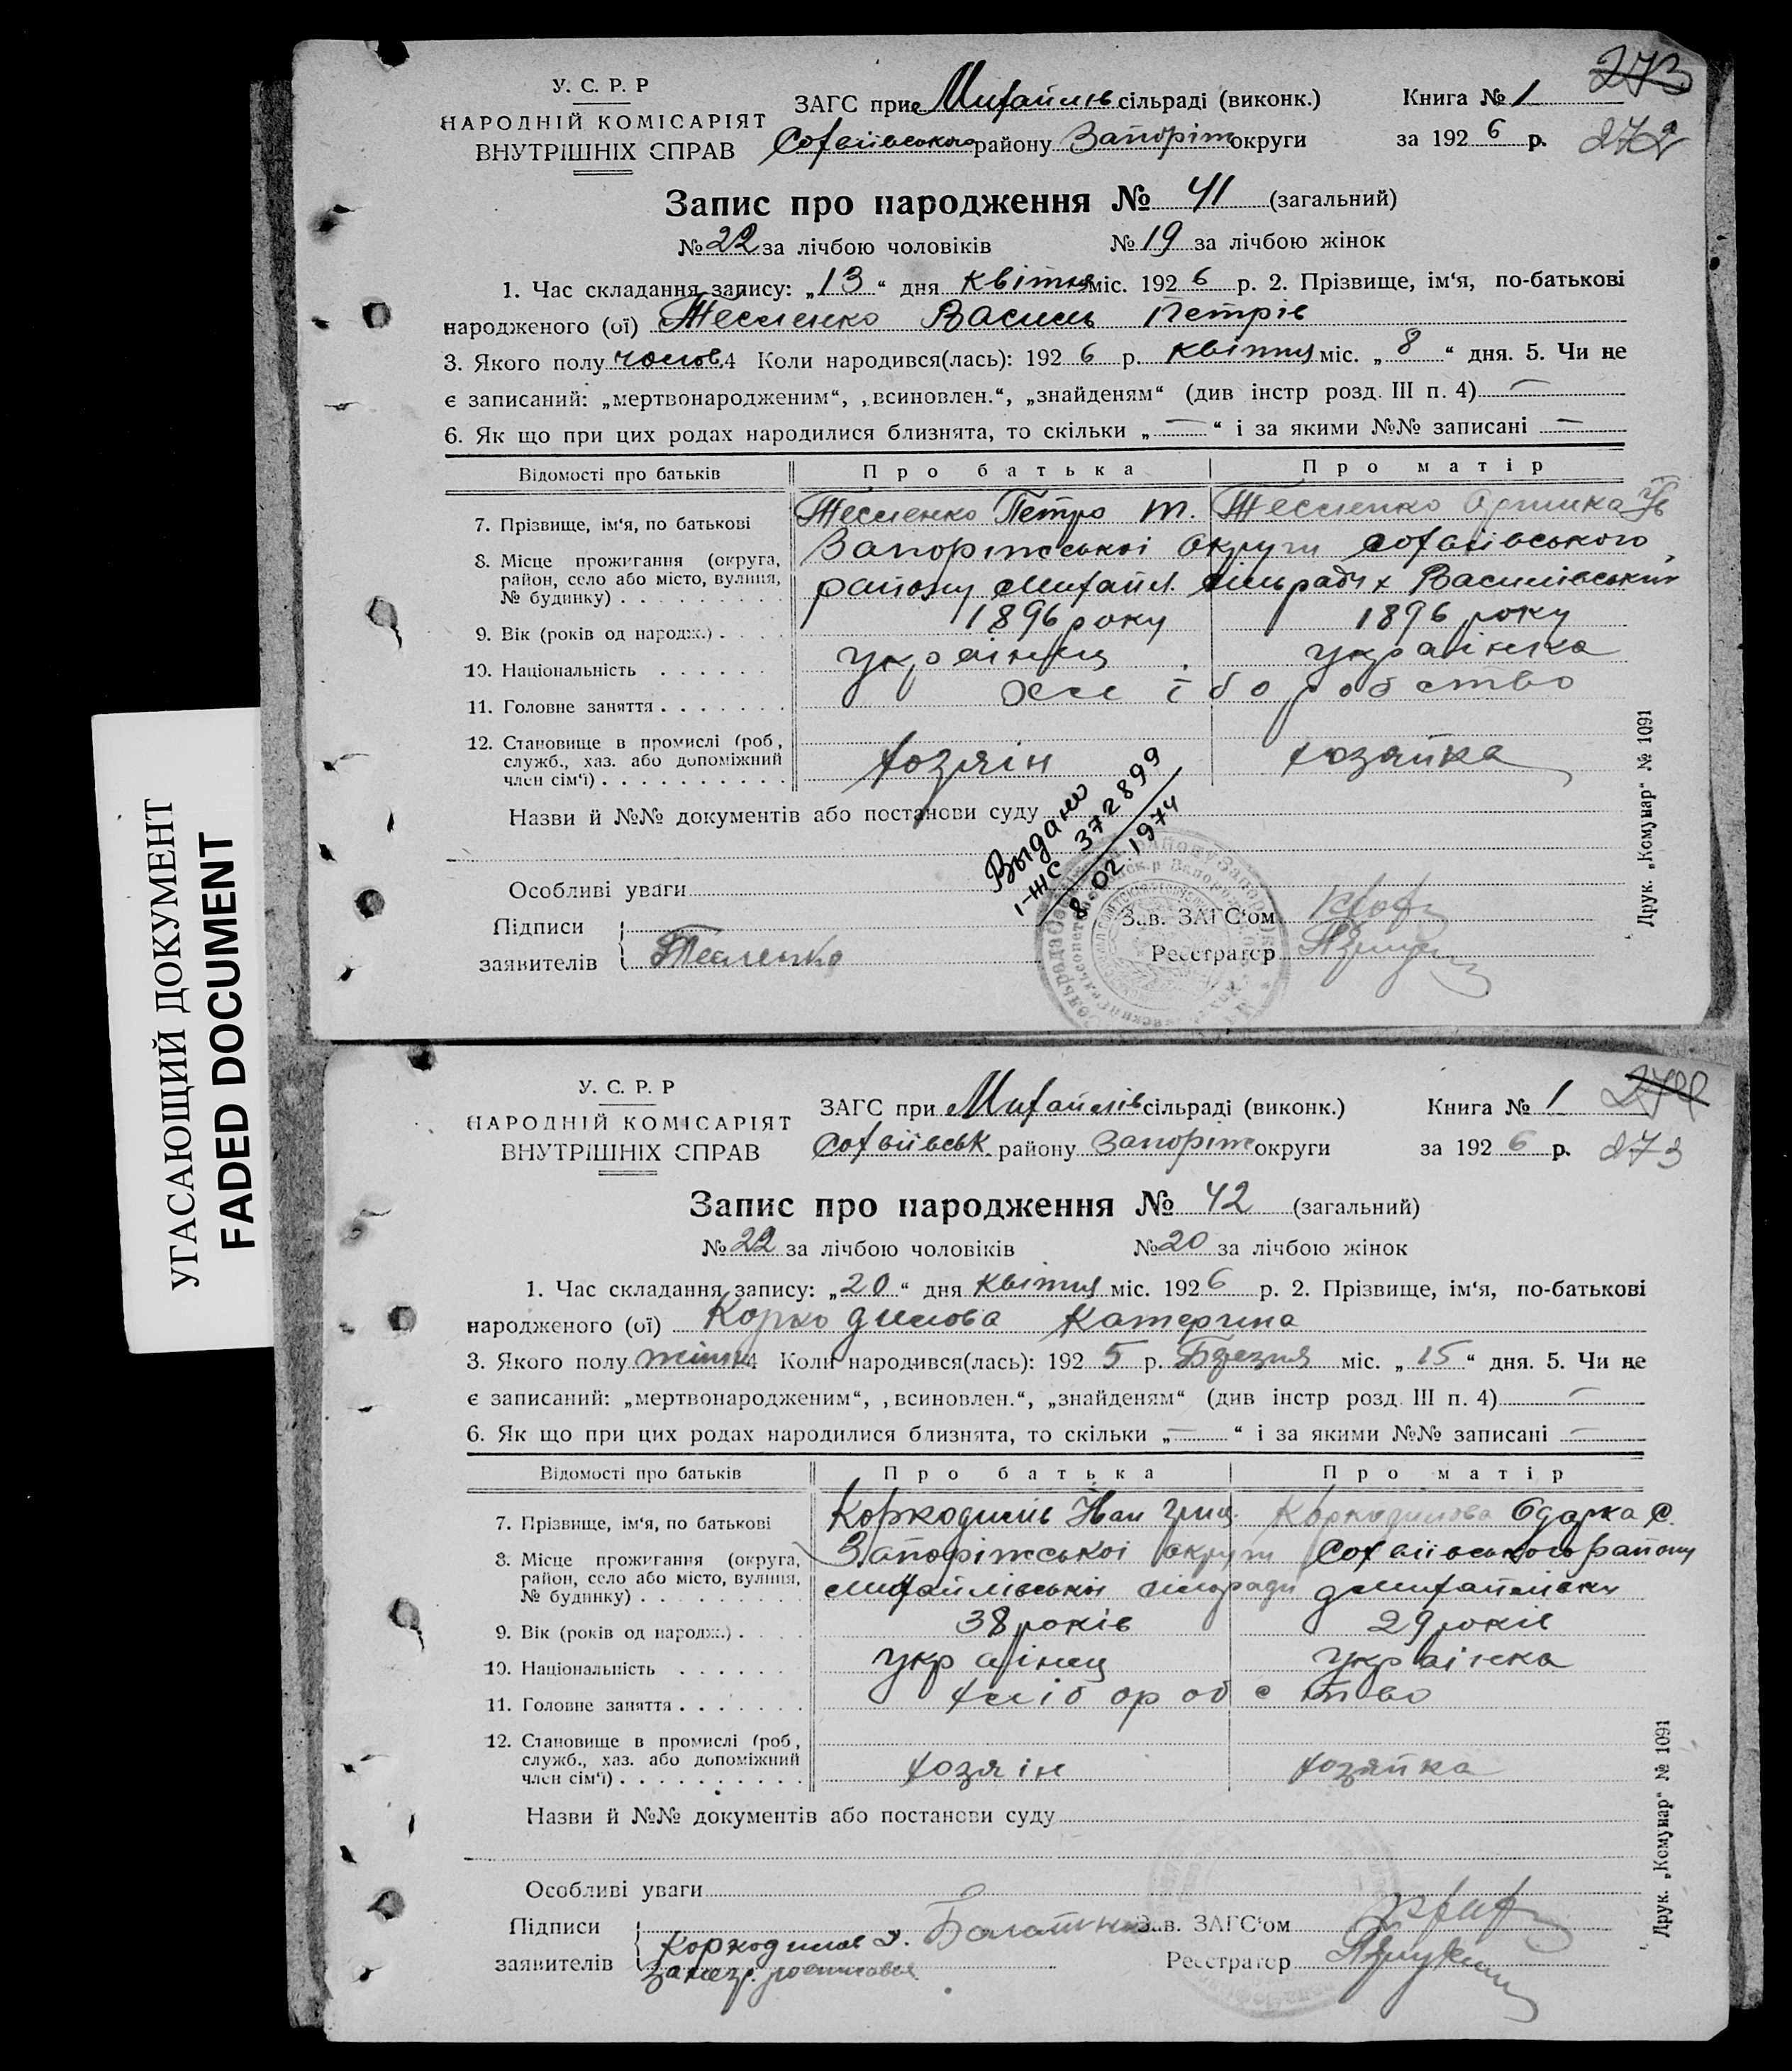 УГАСАЮЩИЙ ДОКУМЕНТ
FADED DOCUMENT
273
272
У. С. Р. Р
НАРОДНІЙ КОМІСАРІЯТ
ВНУТРІШНІХ СПРАВ
ЗАГС при Михайлів сільраді (виконк.)
Софіївського району Запоріж округи
Книга № 1
за 1926 р.
Запис про народження № 41 (загальний)
№ 22 за лічбою чоловіків № 19 за лічбою жінок
1. Час складання запису: „13“ дня квітня міс. 1926 р. 2. Прізвище, ім‘я, по-батькові
народженого (ої) Тесленко Василь Петрів
3. Якого полу чолов. 4 Коли народився(лась): 1926 р. квітня міс. „8“ дня. 5. Чи не
є записаний: „мертвонародженим“, „всиновлен.“, „знайденям“ (див інстр розд. III п. 4) —
6. Як що при цих родах народилися близнята, то скільки „—“ і за якими №№ записані —
Відомості про батьків Про батька Про матір
7. Прізвище, ім‘я, по батькові Тесленко Петро Т. Тесленко Одришка
8. Місце прожигання (округа, район, село або місто, вулиця, № будинку) Запоріжської округи Софіївського
району Михайл. сільради х Василівський
9. Вік (років од народж.) 1896 року 1896 року
10. Національність українец українка
11. Головне заняття хліборобство
12. Становище в промислі (роб, служб., хаз. або допоміжний член сім‘ї) хозяін хозяйка
Назви й №№ документів або постанови суду
Выдано
I-ЖС 372899
8 02 1974
Особливі уваги
Підписи
заявителів Тесленко
Зав. ЗАГС‘ом
Реєстратор
Друк. „Комунар“ № 1091
273
У. С. Р. Р
НАРОДНІЙ КОМІСАРІЯТ
ВНУТРІШНІХ СПРАВ
ЗАГС при Михайлів сільраді (виконк.)
Софіївськ. району Запоріж округи
Книга № 1
за 1926 р.
Запис про народження № 42 (загальний)
№ 22 за лічбою чоловіків № 20 за лічбою жінок
1. Час складання запису: „20“ дня квітня міс. 1926 р. 2. Прізвище, ім‘я, по-батькові
народженого (ої) Коркодилова Катерина
3. Якого полу жіноч 4 Коли народився(лась): 1925 р. Березня міс. „15“ дня. 5. Чи не
є записаний: „мертвонародженим“, „всиновлен.“, „знайденям“ (див інстр розд. III п. 4) —
6. Як що при цих родах народилися близнята, то скільки „—“ і за якими №№ записані —
Відомості про батьків Про батька Про матір
7. Прізвище, ім‘я, по батькові Коркодилів Іван Григ. Коркодилова Одарка С.
8. Місце прожигання (округа, район, село або місто, вулиця, № будинку) Запоріжської округи Софіївського району
Михайлівської сільради д Михайлівки
9. Вік (років од народж.) 38 років 29 років
10. Національність українец українка
11. Головне заняття хліборобство
12. Становище в промислі (роб, служб., хаз. або допоміжний член сім‘ї) хозяін хозяйка
Назви й №№ документів або постанови суду
Особливі уваги
Підписи
заявителів Коркодилов
Зав. ЗАГС‘ом
Реєстратор
Друк. „Комунар“ № 1091